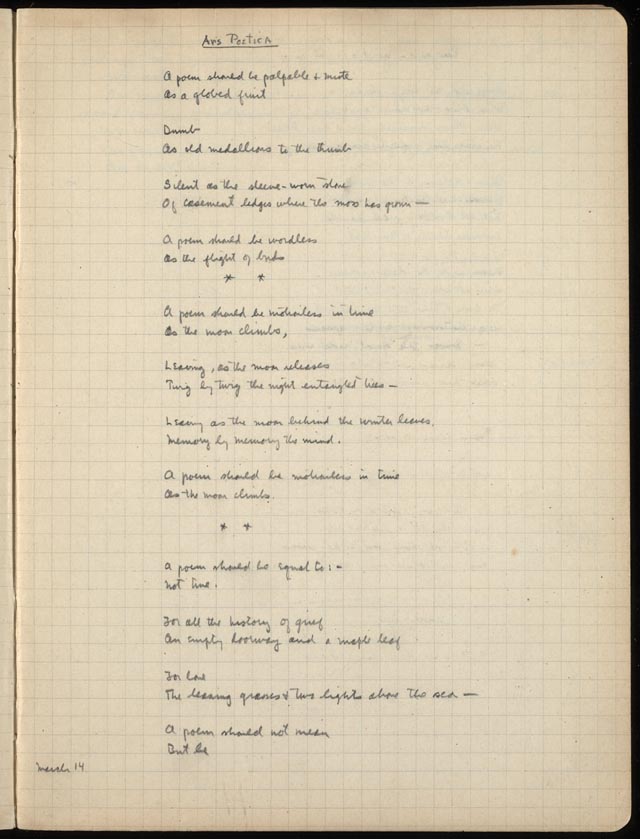 Ars Poetica
A poem should be palpable & mute
As a globed fruit
Dumb
As old medallions to the thumb
Silent as the sleeve-worn stone
Of casement ledges where the moss has grown —
A poem should be wordless
As the flight of birds
* *
A poem should be motionless in time
As the moon climbs,
Leaving, as the moon releases
Twig by twig the night entangled trees —
Leaving as the moon behind the winter leaves,
Memory by memory the mind.
A poem should be motionless in time
As the moon climbs.
* *
A poem should be equal to: –
Not true.
For all the history of grief
An empty doorway and a maple leaf
For love
The leaning grasses & two lights above the sea —
A poem should not mean
But be
March 14